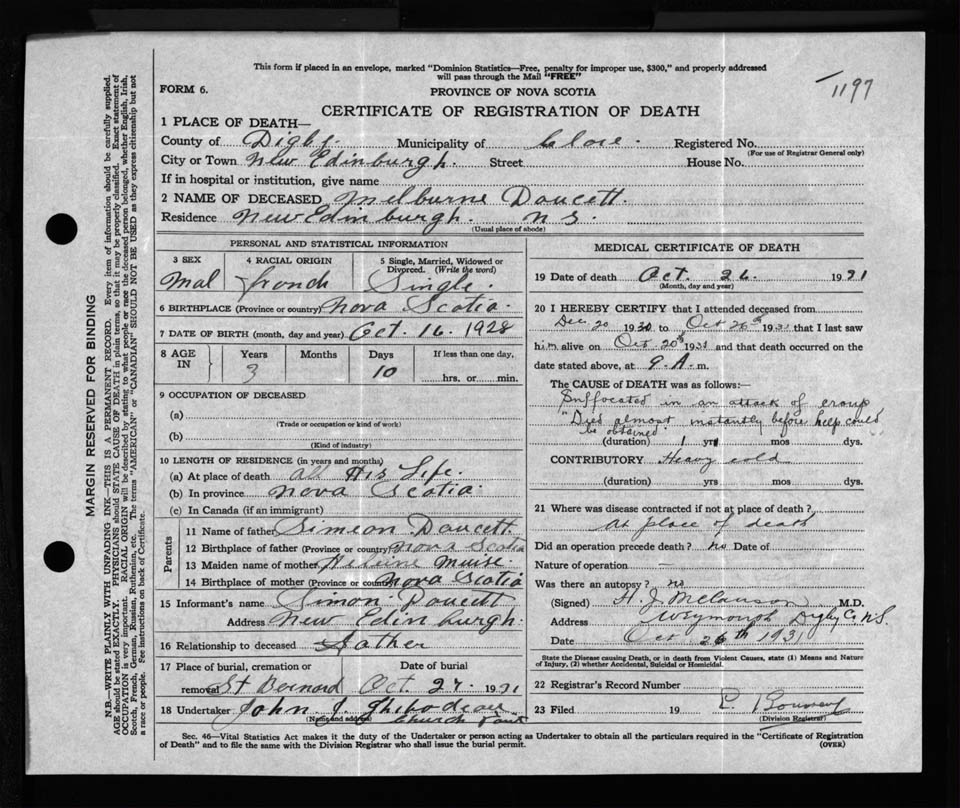 This form if placed in an envelope, marked "Dominion Statistics—Free, penalty for improper use, $300," and properly addressed
will pass through the Mail "FREE"
1197
FORM 6.
PROVINCE OF NOVA SCOTIA
CERTIFICATE OF REGISTRATION OF DEATH
1 PLACE OF DEATH—
County of Digby. Municipality of Clare. Registered No.
(For use of Registrar General only)
City or Town New Edinburgh. Street House No.
If in hospital or institution, give name
2 NAME OF DECEASED Melburne Doucett.
Residence New Edinburgh. N S.
(Usual place of abode)
PERSONAL AND STATISTICAL INFORMATION
3 SEX 4 RACIAL ORIGIN 5 Single, Married, Widowed or
Divorced. (Write the word)
Mal french Single.
6 BIRTHPLACE (Province or country) Nova Scotia.
7 DATE OF BIRTH (month, day and year) Oct. 16. 1928
8 AGE IN Years Months Days If less than one day,
3 10 hrs. or min.
9 OCCUPATION OF DECEASED
(a)
(Trade or occupation or kind of work)
(b)
(Kind of industry)
10 LENGTH OF RESIDENCE (in years and months)
(a) At place of death All His Life.
(b) In province Nova Scotia.
(c) In Canada (if an immigrant)
Parents
11 Name of father Simeon Doucett.
12 Birthplace of father (Province or country) Nova Scotia
13 Maiden name of mother Muise.
14 Birthplace of mother (Province or country) Nova Scotia
15 Informant's name Simon Doucett
Address New Edinburgh.
16 Relationship to deceased Father
17 Place of burial, cremation or Date of burial
removal St Bernard Oct. 27. 1931
18 Undertaker John J. Thibodeau
(Name and address) Church Point
MEDICAL CERTIFICATE OF DEATH
19 Date of death Oct. 26. 1931
(Month, day and year)
20 I HEREBY CERTIFY that I attended deceased from
Dec 20 1930 to Oct 26th 1931 that I last saw
him alive on Oct 20th 1931 and that death occurred on the
date stated above, at 9. A. m.
The CAUSE OF DEATH was as follows:—
Suffocated in an attack of croup
"Died almost instantly before help could
be obtained"
(duration) yrs mos dys.
CONTRIBUTORY Heavy cold
(duration) yrs mos dys.
21 Where was disease contracted if not at place of death?
At place of death
Did an operation precede death? no Date of
Nature of operation —
Was there an autopsy? no
(Signed) H. J. Melanson M.D.
Address Weymouth Digby Co N.S.
Date Oct 26th 1931
State the Disease causing Death, or in death from Violent Causes, state (1) Means and Nature
of Injury, (2) whether Accidental, Suicidal or Homicidal.
22 Registrar's Record Number
23 Filed 19
(Division Registrar)
Sec. 46—Vital Statistics Act makes it the duty of the Undertaker or person acting as Undertaker to obtain all the particulars required in the "Certificate of Registration
of Death" and to file the same with the Division Registrar who shall issue the burial permit.
(OVER)
MARGIN RESERVED FOR BINDING
N.B.—WRITE PLAINLY WITH UNFADING INK—THIS IS A PERMANENT RECORD. Every item of information should be carefully supplied.
AGE should be stated EXACTLY. PHYSICIANS should STATE CAUSE OF DEATH in plain terms, so that it may be properly classified. Exact statement of
OCCUPATION is very important. RACIAL ORIGIN will be described by stating to what people or race the deceased person belonged, whether English, Irish,
Scotch, French, German, Russian, Ruthenian, etc. The terms "AMERICAN" or "CANADIAN" SHOULD NOT BE USED as they express citizenship but not
a race or people. See instructions on back of Certificate.